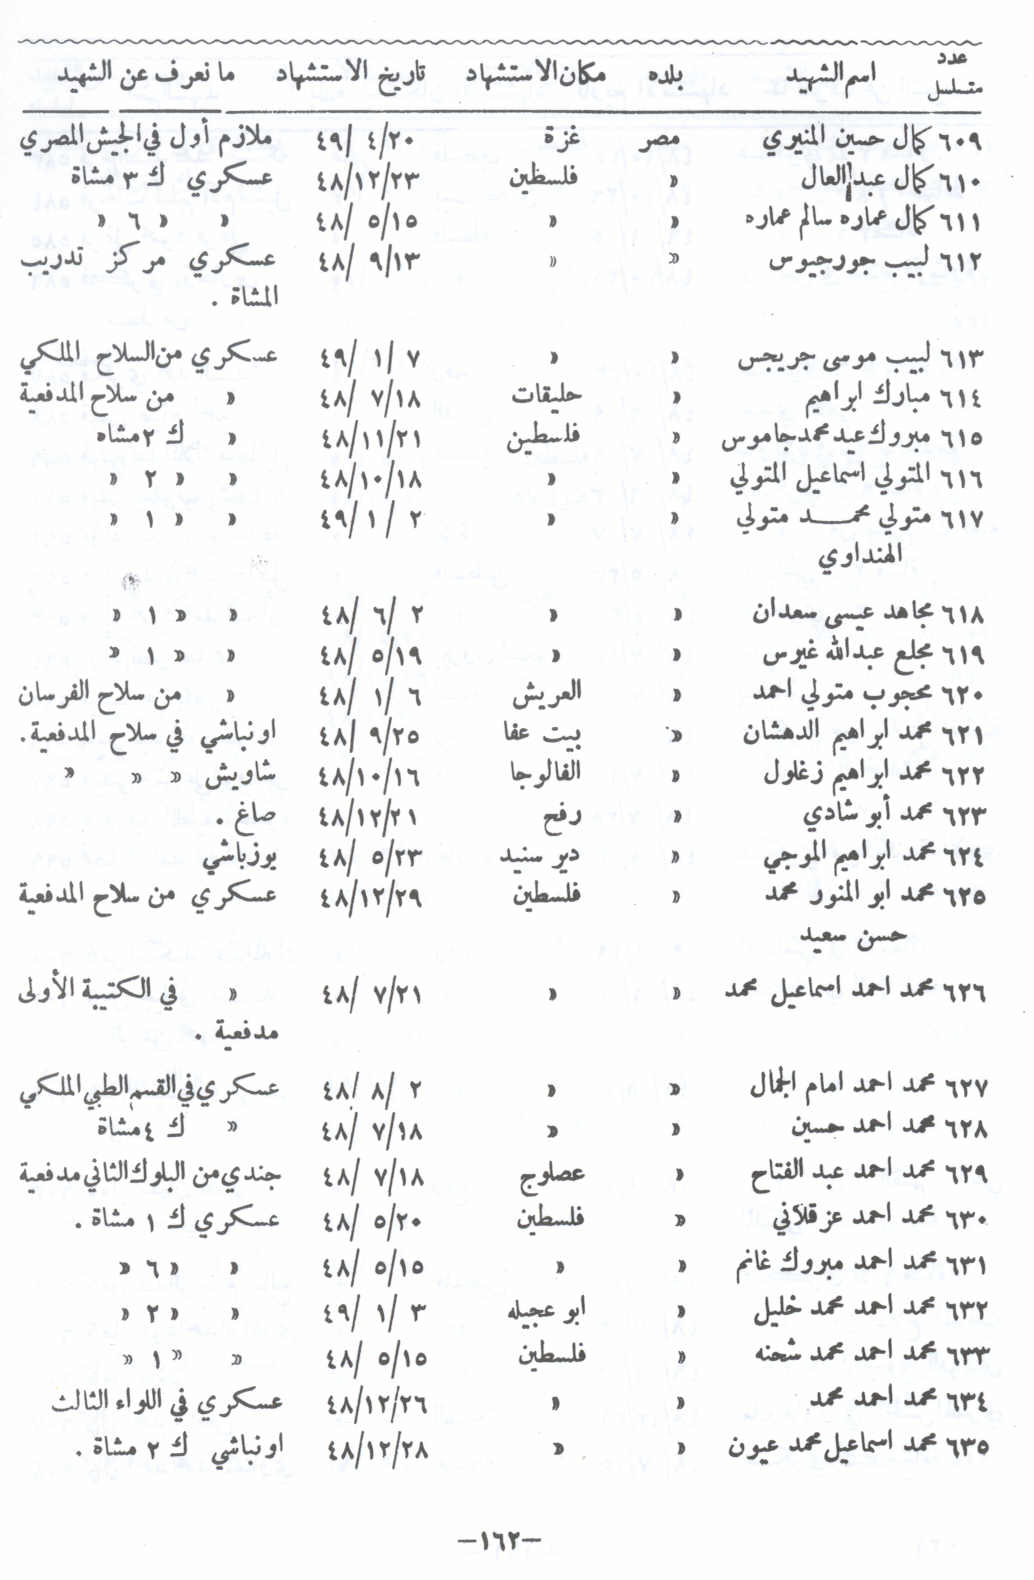 عدد متسلسل اسم الشهيد بلده مكان الاستشهاد تاريخ الاستشهاد ما نعرف عن الشهيد
٦٠٩ كمال حسين المنيري مصر غزة ٤٩/ ٤/٢٠ ملازم أول في الجيش المصري
٦١٠ كمال عبد العال » فلسطين ٤٨/١٢/٢٣ عسكري ك ٣ مشاة
٦١١ كمال عماره سالم عماره » » ٤٨/ ٥/١٥ » » ٦ »
٦١٢ لبيب جورجيوس » » ٤٨/ ٩/١٣ عسكري مركز تدريب
المشاة .
٦١٣ لبيب موسى جريجس » » ٤٩/ ١/ ٧ عسكري من السلاح الملكي
٦١٤ مبارك ابراهيم » حليقات ٤٨/ ٧/١٨ » من سلاح المدفعية
٦١٥ مبروك عيد محمد جاموس » فلسطين ٤٨/١١/٢١ » ك ٢ مشاه
٦١٦ المتولي اسماعيل المتولي » » ٤٨/١٠/١٨ » » ٢ »
٦١٧ متولي محمد متولي » » ٤٩/ ١/ ٢ » » ١ »
الهنداوي
٦١٨ مجاهد عيسى سعدان » » ٤٨/ ٦/ ٢ » » ١ »
٦١٩ مجلع عبدالله غيوس » » ٤٨/ ٥/١٩ » » ١ »
٦٢٠ محجوب متولي احمد » العريش ٤٨/ ١/ ٦ » من سلاح الفرسان
٦٢١ محمد ابراهيم الدهشان » بيت عفا ٤٨/ ٩/٢٥ اونباشي في سلاح المدفعية .
٦٢٢ محمد ابراهيم زغلول » الفالوجا ٤٨/١٠/١٦ شاويش » » »
٦٢٣ محمد أبو شادي » رفح ٤٨/١٢/٢١ صاغ .
٦٢٤ محمد ابراهيم الموجي » دير سنيد ٤٨/ ٥/٢٣ يوزباشي
٦٢٥ محمد ابو المنور محمد » فلسطين ٤٨/١٢/٢٩ عسكري من سلاح المدفعية
حسن سعيد
٦٢٦ محمد احمد اسماعيل محمد » » ٤٨/ ٧/٢١ » في الكتيبة الأولى
مدفعية .
٦٢٧ محمد احمد امام الجمال » » ٤٨/ ٨/ ٢ عسكري في القسم الطبي الملكي
٦٢٨ محمد احمد حسين » » ٤٨/ ٧/١٨ » ك ٤ مشاة
٦٢٩ محمد احمد عبد الفتاح » عصلوج ٤٨/ ٧/١٨ جندي من البلوك الثاني مدفعية
٦٣٠ محمد احمد عزقلاني » فلسطين ٤٨/ ٥/٢٠ عسكري ك ١ مشاة .
٦٣١ محمد احمد مبروك غانم » » ٤٨/ ٥/١٥ » » ٦ »
٦٣٢ محمد احمد محمد خليل » ابو عجيله ٤٩/ ١/ ٣ » » ٢ »
٦٣٣ محمد احمد محمد شحنه » فلسطين ٤٨/ ٥/١٥ » » ١ »
٦٣٤ محمد احمد محمد » » ٤٨/١٢/٢٦ عسكري في اللواء الثالث
٦٣٥ محمد اسماعيل محمد عيون » » ٤٨/١٢/٢٨ اونباشي ك ٢ مشاة .
—١٦٢—